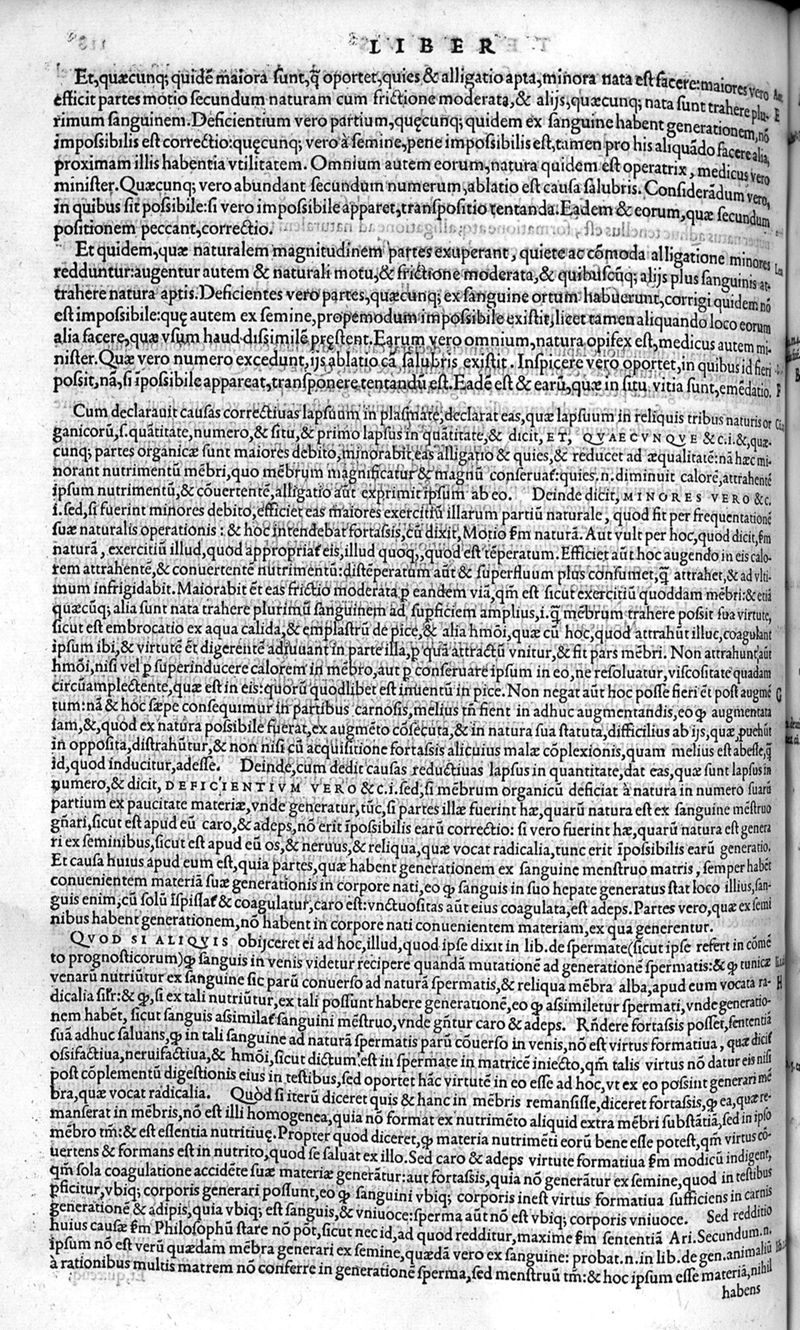 LIBER
Et, quæcunq; quidẽ maiora sunt, q̃ oportet, quies & alligatio apta, minora nata est facere: maiores vero
efficit partes motio secundum naturam cum frictione moderata, & alijs, quæcunq; nata sunt trahere plu-
rimum sanguinem. Deficientium vero partium, quęcunq; quidem ex sanguine habent generationem, nõ
impossibilis est correctio: quęcunq; vero à semine, pene impossibilis est, tamen pro his aliquãdo facere alia,
proximam illis habentia vtilitatem. Omnium autem eorum, natura quidem est operatrix, medicus vero
minister. Quæcunq; vero abundant secundum numerum, ablatio est causa salubris. Considerãdum vero,
in quibus sit possibile: si vero impossibile apparet, transpositio tentanda. Eadem & eorum, quæ secundum
positionem peccant, correctio.
Et quidem, quæ naturalem magnitudinem partes exuperant, quiete ac cõmoda alligatione minores
redduntur: augentur autem & naturali motu, & frictione moderata, & quibuscũq; alijs plus sanguinis at-
trahere natura aptis. Deficientes vero partes, quæcunq; ex sanguine ortum habuerunt, corrigi quidem nõ
est impossibile: quę autem ex semine, propemodum impossibile existit, licet tamen aliquando loco eorum
alia facere, quæ vsum haud dissimilẽ pręstent. Earum vero omnium, natura opifex est, medicus autem mi-
nister. Quæ vero numero excedunt, ijs ablatio cã salubris existit. Inspicere vero oportet, in quibus id fieri
possit, nã, si ĩpossibile appareat, transponere tentandũ est. Eadẽ est & earũ, quæ in situ vitia sunt, emẽdatio.
Cum declarauit causas correctiuas lapsuum in plasmate, declarat eas, quæ lapsuum in reliquis tribus naturis or
ganicorũ, s. quãtitate, numero, & situ, & primo lapsus in quãtitate, & dicit, ET, QVAECVNQVE & c. i. &, quæ-
cunq; partes organicæ sunt maiores debito, minorabit eas alligatio & quies, & reducet ad æqualitatẽ: nã hæc mi-
norant nutrimentũ mẽbri, quo mẽbrum magnificatur & magnũ conseruat̃: quies. n. diminuit calorẽ, attrahentẽ
ipsum nutrimentũ, & cõuertentẽ, alligatio aũt exprimit ipsum ab eo. Deinde dicit, MINORES VERO & c.
i. sed, si fuerint minores debito, efficiet eas maiores exercitiũ illarum partiũ naturale, quod fit per frequentationẽ
suæ naturalis operationis: & hoc intendebat fortassis, cũ dixit, Motio ẜm naturã. Aut vult per hoc, quod dicit, ẜm
naturã, exercitiũ illud, quod appropriat̃ eis, illud quoq;, quod est tẽperatum. Efficiet aũt hoc augendo in eis calo-
rem attrahentẽ, & conuertentẽ nutrimentũ: distẽperatum aũt & superfluum plus consumet, q̃ attrahet, & ad vlti-
mum infrigidabit. Maiorabit ẽt eas frictio moderata p eandem viã, qm̃ est sicut exercitiũ quoddam mẽbri: & etiã
quæcũq; alia sunt nata trahere plurimũ sanguinem ad supficiem amplius, i. q̃ mẽbrum trahere possit sua virtute,
sicut est embrocatio ex aqua calida, & emplastrũ de pice, & alia hmõi, quæ cũ hoc, quod attrahũt illuc, coagulant
ipsum ibi, & virtutẽ ẽt digerentẽ adiuuant in parte illa, p quã attractũ vnitur, & fit pars mẽbri. Non attrahunt aũt
hmõi, nisi vel p superinducere calorem in mẽbro, aut p conseruare ipsum in eo, ne resoluatur, viscositate quadam
circũamplectente, quæ est in eis: quorũ quodlibet est inuentũ in pice. Non negat aũt hoc posse fieri ẽt post augmẽ
tum: nã & hoc sæpe consequimur in partibus carnosis, melius tñ fient in adhuc augmentandis, eo ꝙ augmentata
iam, & quod ex natura possibile fuerat, ex augmẽto cõsecuta, & in natura sua statuta, difficilius ab ijs, quæ puehũt
in opposita, distrahũtur, & non nisi cũ acquisitione fortassis alicuius malæ cõplexionis, quam melius est abesse, q̃
id, quod inducitur, adesse. Deinde, cum dedit causas reductiuas lapsus in quantitate, dat eas, quæ sunt lapsus in
numero, & dicit, DEFICIENTIVM VERO & c. i. sed, si mẽbrum organicũ deficiat à natura in numero suarũ
partium ex paucitate materiæ, vnde generatur, tũc, si partes illæ fuerint hæ, quarũ natura est ex sanguine mẽstruo
gñari, sicut est apud eũ caro, & adeps, nõ erit ĩpossibilis earũ correctio: si vero fuerint hæ, quarũ natura est genera
ri ex seminibus, sicut est apud eũ os, & neruus, & reliqua, quæ vocat radicalia, tunc erit ĩpossibilis earũ generatio.
Et causa huius apud eum est, quia partes, quæ habent generationem ex sanguine menstruo matris, semper habẽt
conuenientem materiã suæ generationis in corpore nati, eo ꝙ sanguis in suo hepate generatus stat loco illius, san-
guis enim, cũ solũ ĩspissat̃ & coagulatur, caro est: vnctuositas aũt eius coagulata, est adeps. Partes vero, quæ ex semi
nibus habent generationem, nõ habent in corpore nati conuenientem materiam, ex qua generentur.
QVOD SI ALIQVIS obijceret ei ad hoc, illud, quod ipse dixit in lib. de spermate (sicut ipse refert in cõmẽ
to prognosticorum) ꝙ sanguis in venis videtur recipere quandã mutationẽ ad generationẽ spermatis: & ꝙ tunicæ
venarũ nutriũtur ex sanguine sic parũ conuerso ad naturã spermatis, & reliqua mẽbra alba, apud eum vocata ra-
dicalia silr: & ꝙ, si ex tali nutriũtur, ex tali possunt habere generationẽ, eo ꝙ assimiletur spermati, vnde generatio-
nem habẽt, sicut sanguis assimilat̃ sanguini mẽstruo, vnde gñtur caro & adeps. Rñdere fortassis posset, sententiã
suã adhuc saluans, ꝙ in tali sanguine ad naturã spermatis parũ cõuerso in venis, nõ est virtus formatiua, quæ dicit̃
ossifactiua, neruifactiua, & hmõi, sicut dictum est in spermate in matricẽ iniecto, qm̃ talis virtus nõ datur eis nisi
post cõplementũ digestionis eius in testibus, sed oportet hãc virtutẽ in eo esse ad hoc, vt ex eo possint generari mẽ
bra, quæ vocat radicalia. Quòd si iterũ diceret quis & hanc in mẽbris remansisse, diceret fortassis, ꝙ ea, quæ re-
manserat in mẽbris, nõ est illi homogenea, quia nõ format ex nutrimẽto aliquid extra mẽbri substãtiã, sed in ipso
mẽbro tm̃: & est essentia nutritiuę. Propter quod diceret, ꝙ materia nutrimẽti eorũ bene esse potest, qm̃ virtus cõ-
uertens & formans est in nutrito, quod se saluat ex illo. Sed caro & adeps virtute formatiua ẜm modicũ indigent,
qm̃ sola coagulatione accidẽte suæ materiæ generãtur: aut fortassis, quia nõ generãtur ex semine, quod in testibus
pficitur, vbiq; corporis generari possunt, eo ꝙ sanguini vbiq; corporis inest virtus formatiua sufficiens in carnis
generationẽ & adipis, quia vbiq; est sanguis, & vniuoce: sperma aũt nõ est vbiq; corporis vniuoce. Sed redditio
huius causæ ẜm Philosophũ stare nõ põt, sicut nec id, ad quod redditur, maxime ẜm sententiã Ari. Secundum. n.
ipsum nõ est verũ quædam mẽbra generari ex semine, quædã vero ex sanguine: probat. n. in lib. de gen. animaliũ
à rationibus multis matrem nõ conferre in generationẽ sperma, sed menstruũ tm̃: & hoc ipsum esse materiã, nihil
habens